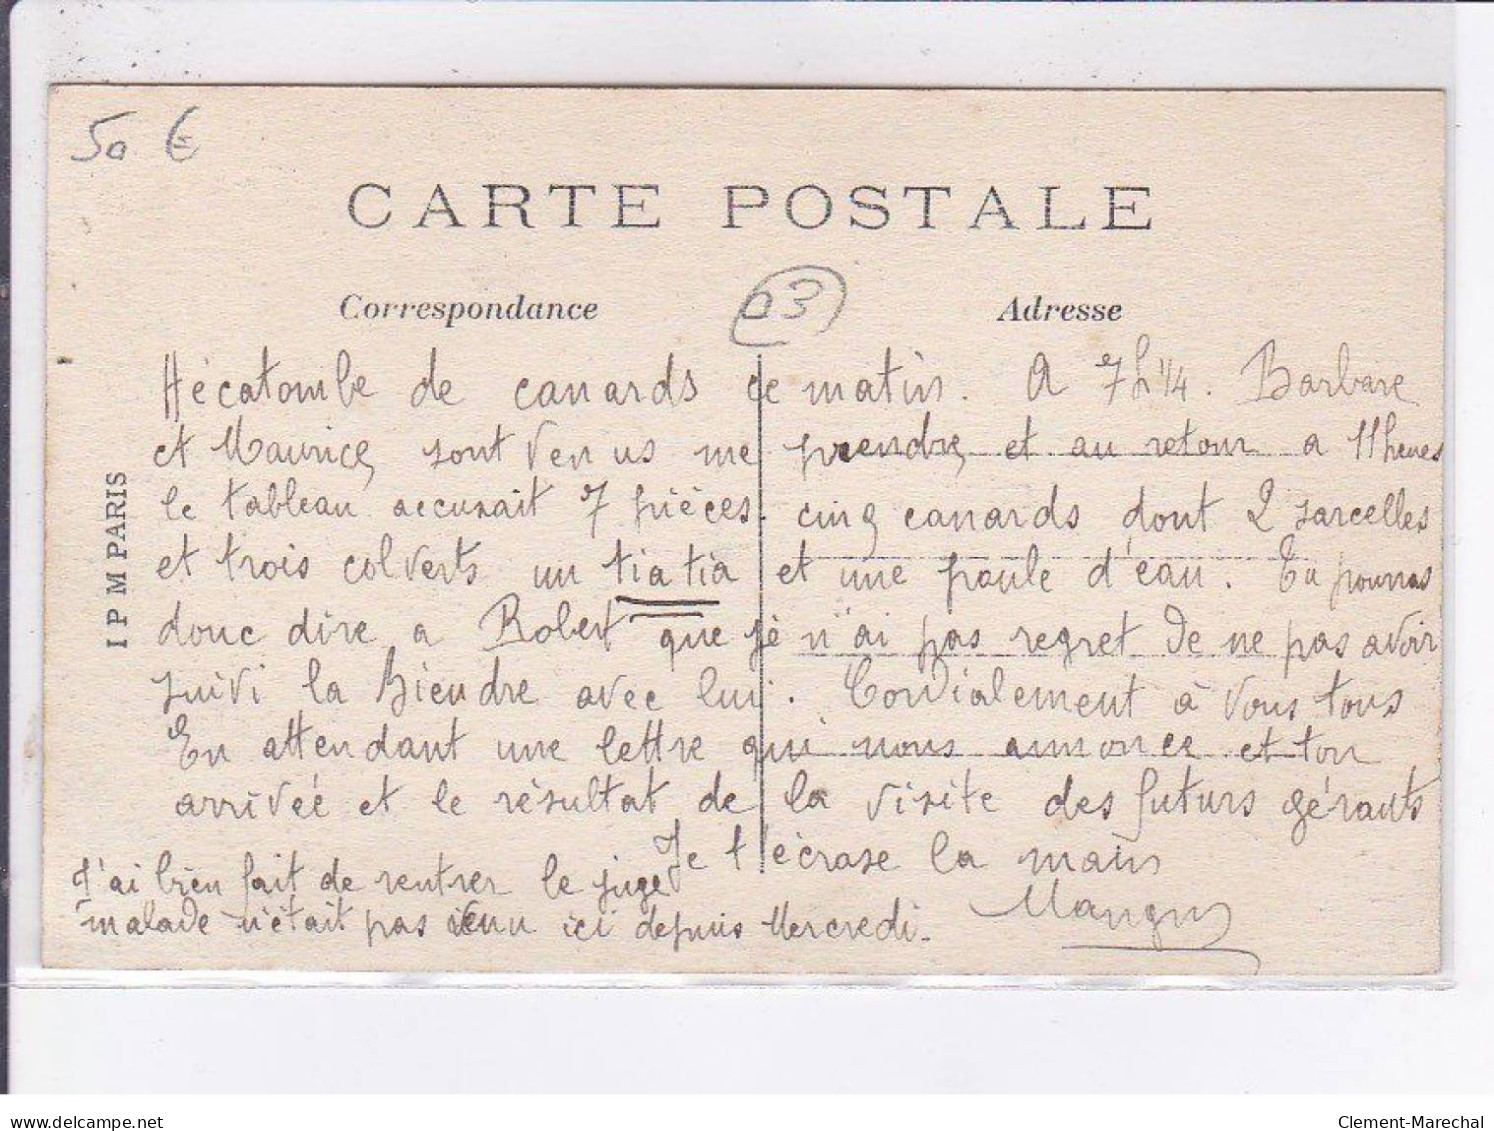 50 €
CARTE POSTALE
Correspondance
03
Adresse
I P M PARIS
Hécatombe de canards ce matin. A 7h 1/4. Barbare
et Maurice, sont venus me prendre, et au retour a 11 heures
le tableau accusait 7 pièces. cinq canards dont 2 sarcelles
et trois colverts un tia tia et une poule d'eau. Tu pourras
donc dire a Robert que je n'ai pas regret de ne pas avoir
suivi la Bieudre avec lui. Cordialement à vous tous
En attendant une lettre qui nous annonce et ton
arrivée et le résultat de la visite des futurs gérants
Je t'écrase la main
J'ai bien fait de rentrer le juge
malade n'était pas venu ici depuis Mercredi.
delcampe.net
Clement-Marechal